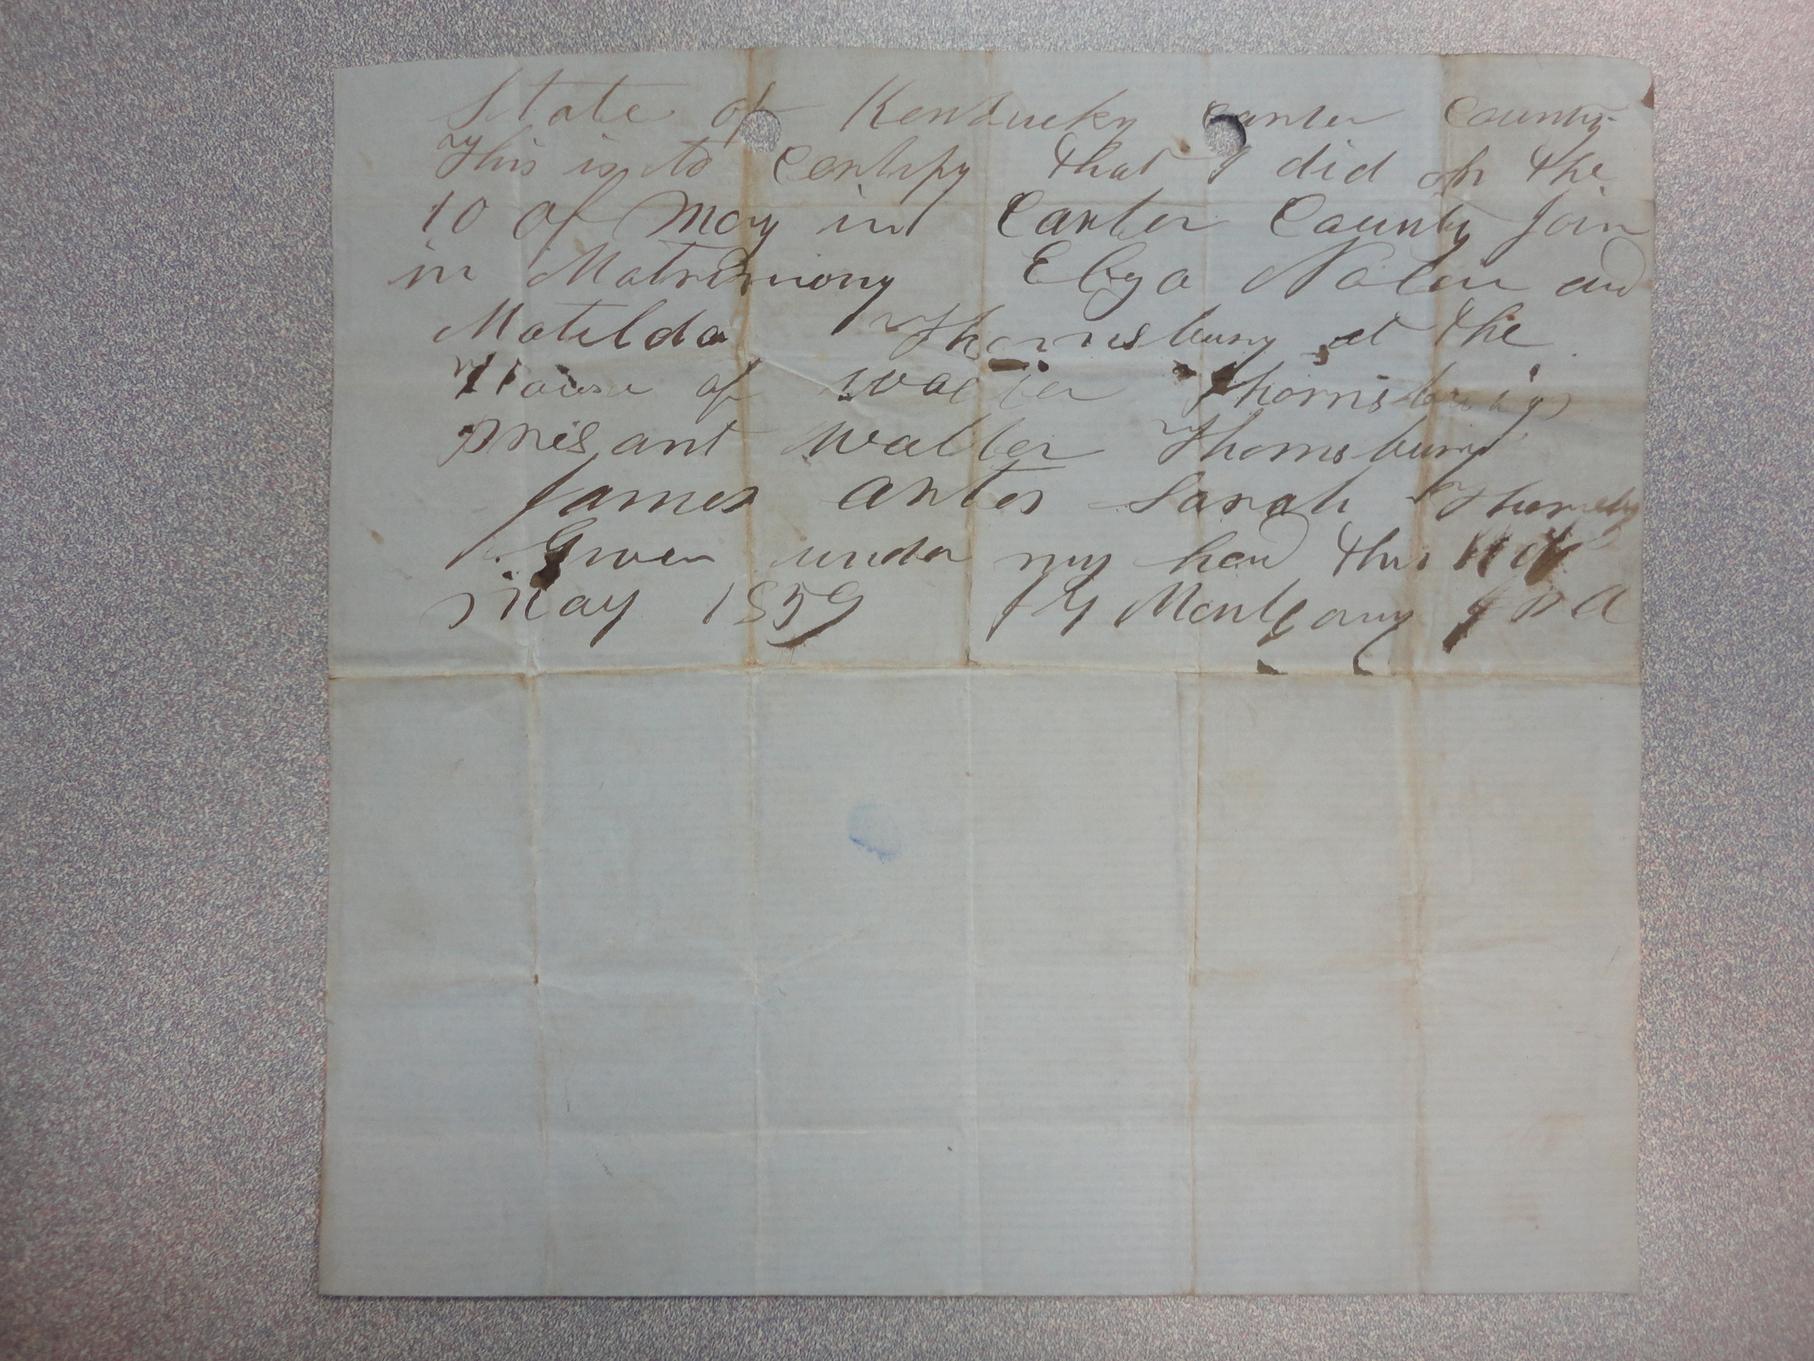 State of Kentucky Carter County
This is to Certify that I did on the
10 of May in Carter County Join
in Matrimony Elza Nolen and
Matilda Thornsbury at the
House of Walter Thornsburys
Presant Walter Thornsbury
James Sarah
Given under my hand this 11 of
May 1859